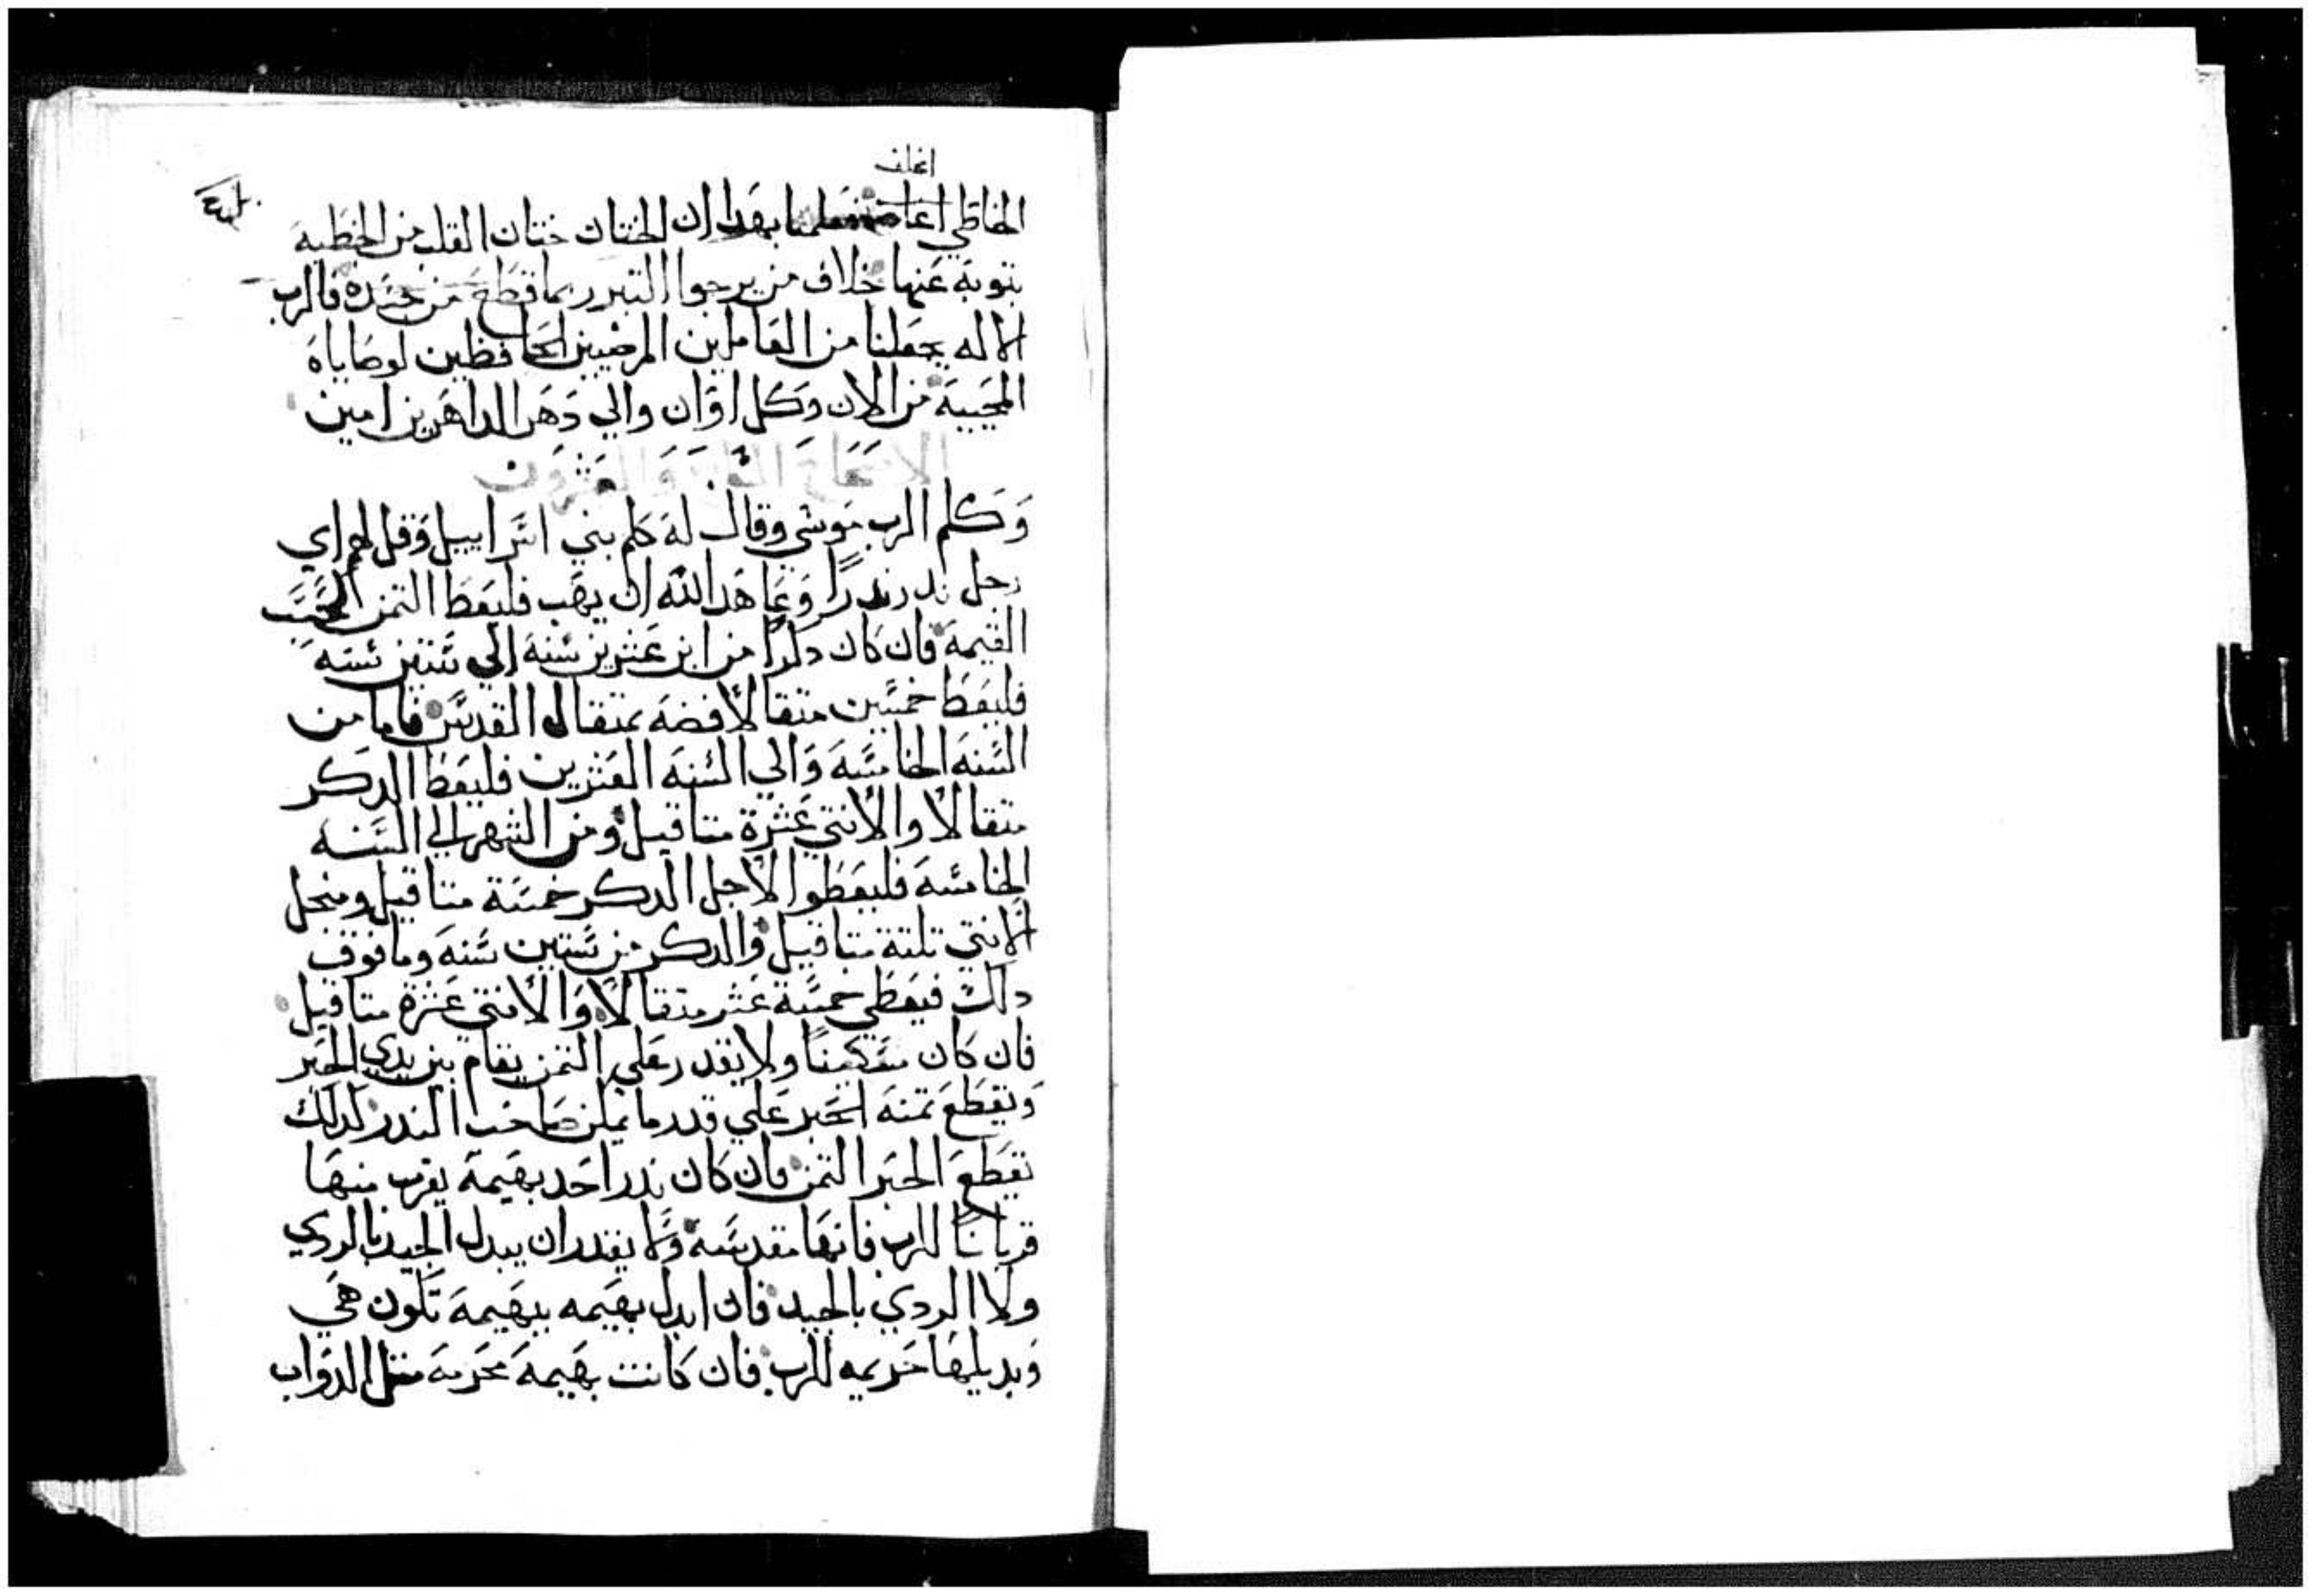 اغلف
الخاطي فعلمنا بهدا ان الختان ختان القلب من الخطيه
بتوبة عنها خلاف من يرجوا التبرر بما قطع من جسده فالرب
الاله يجعلنا من العاملين المرضيين الحافظين لوصاياه
المحييه من الان وكل اوان والي دهر الداهرين امين
الاصحاح والعشرون
وكلم الرب موسي وقال له كلم بني اسراييل وقل لهم اي
رجل ندر ندرا وعاهد الله ان يهب فليعط التمن بحسب
القيمة فان كان دكرا من ابن عشرين سنة الي ستين سنه
فليعط خمسين متقالا فضه بمتقال القدس فاما من
السنة الخامسه والي السنة العشرين فليعط الدكر
متقالا والانتي عشرة متاقيل ومن الشهر الي السنه
الخامسه فليعطوا لاجل الدكر خمسة متاقيل ومنجل
الانتي تلتة متاقيل والدكر من ستين سنه وما فوق
دلك فيعطي خمسة عشر متقالا والانتي عشرة متاقيل
فان كان مسكينا ولا يقدر علي التمن يقام بين يدي الحبر
ويقطع تمنه الحبر علي قدر ما يملن صاحب الندر لدلك
يقطع الحبر التمن فان كان ندر احد بهيمة يقرب منها
قربانا للرب فانها مقدسه ولا يقدر ان يبدل الجيد بالردي
ولا الردي بالجيد فان ابدل بهيمه ببهيمة تكون هي
وبديلها حريمه للرب فان كانت بهيمة محرمه متل الدواب